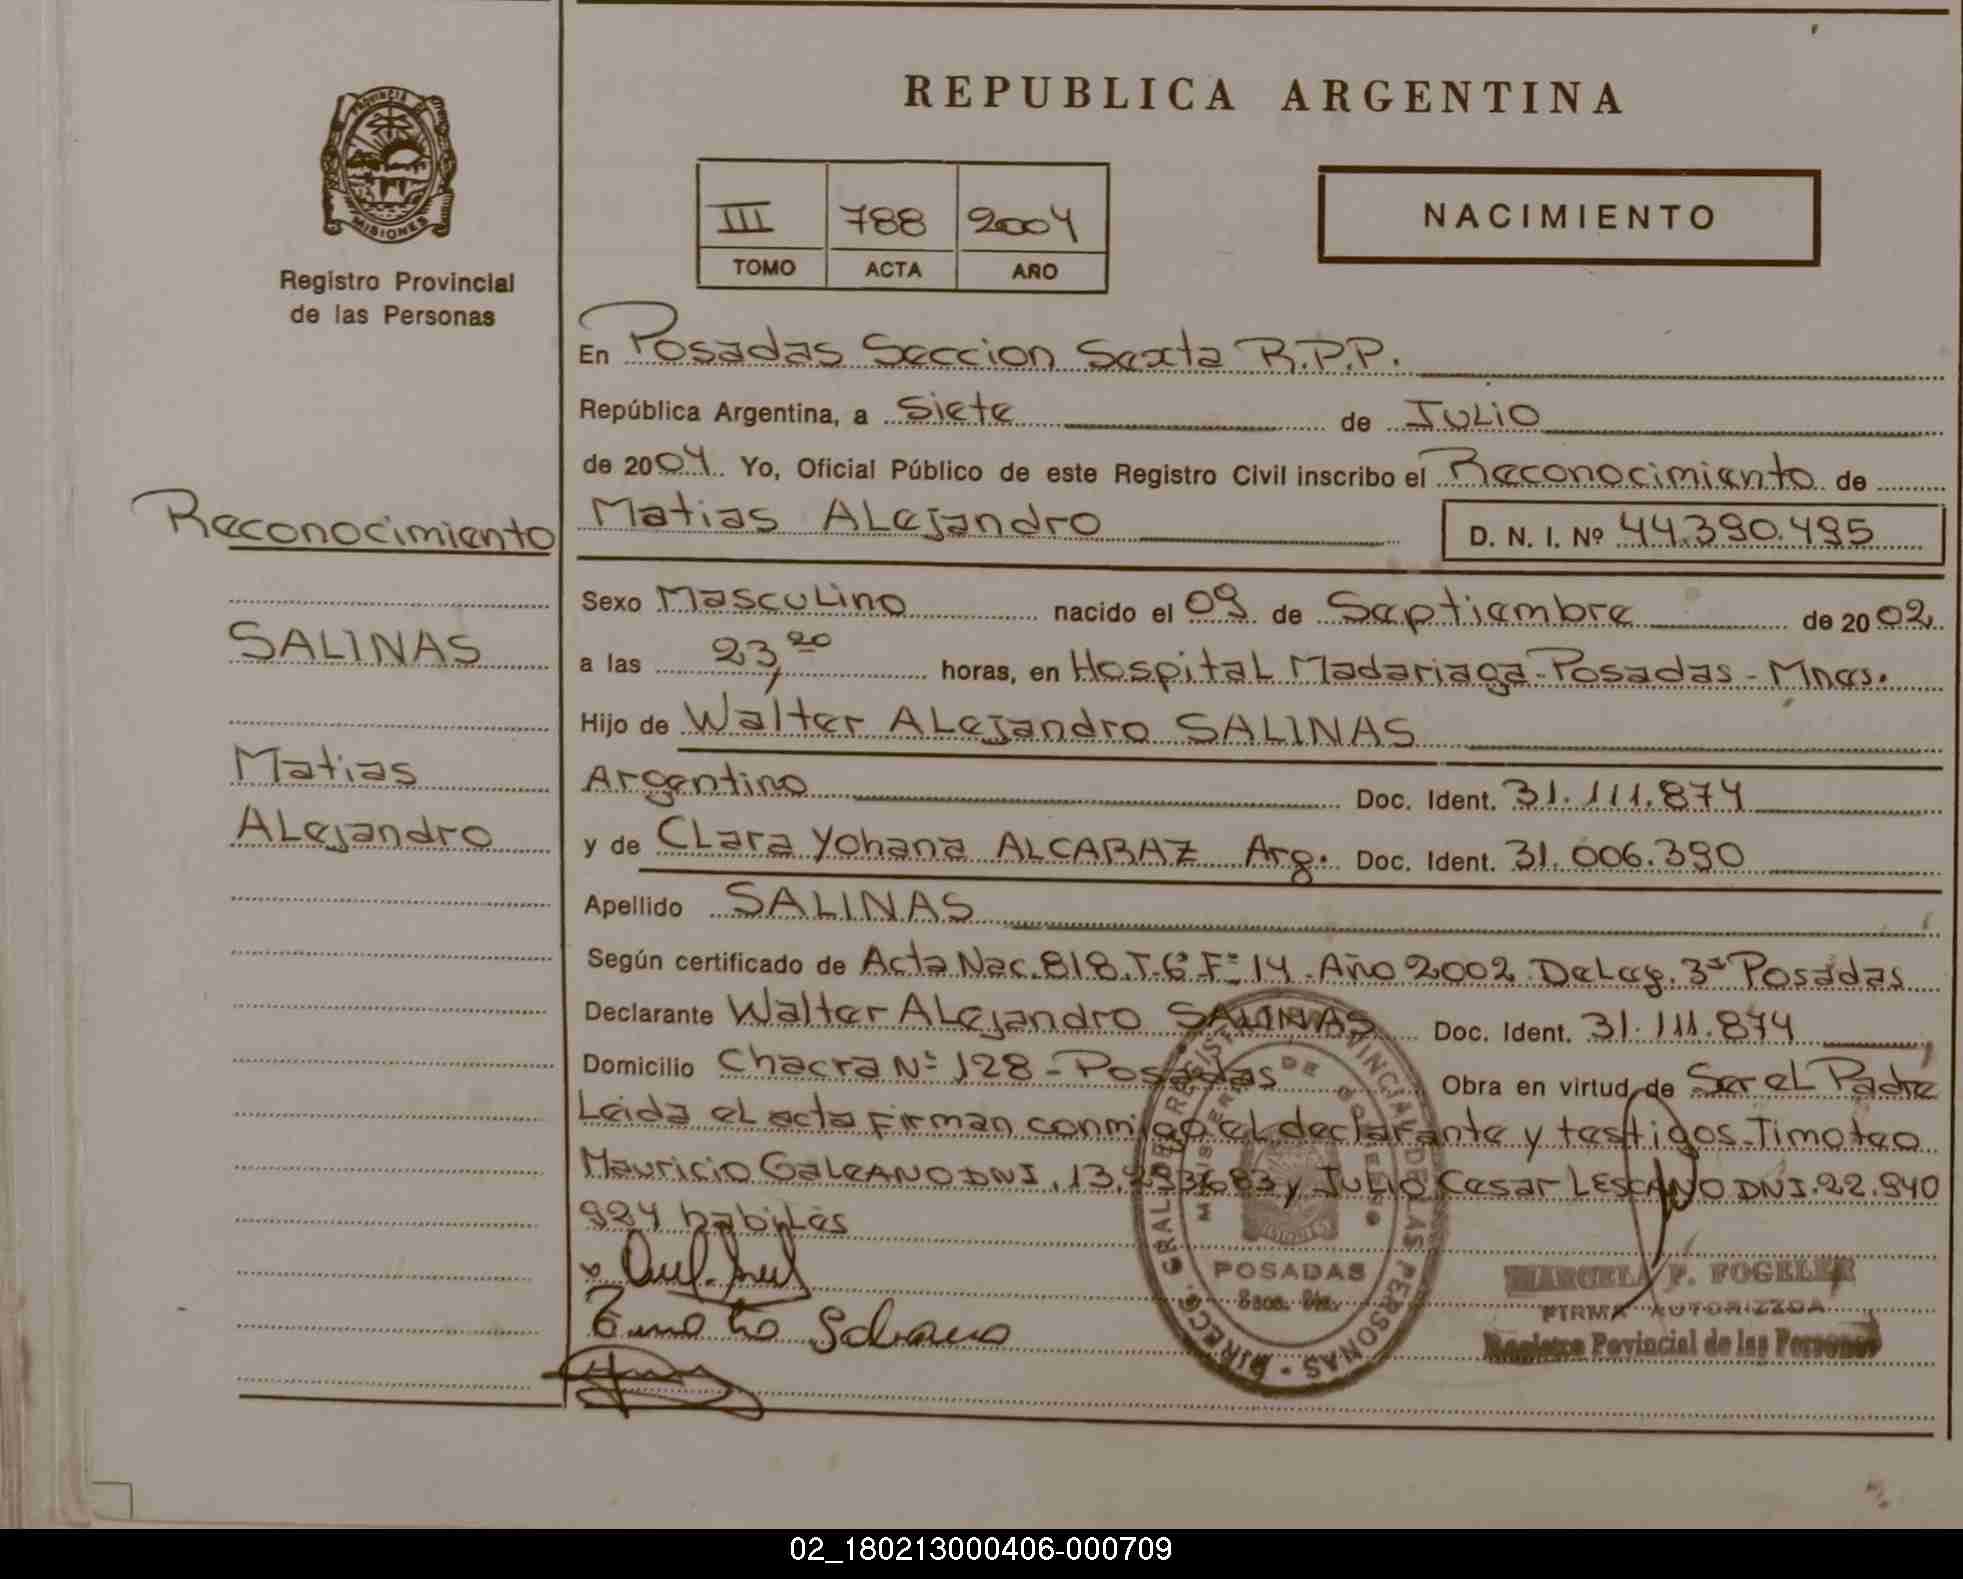 REPUBLICA ARGENTINA
PROVINCIA DE
MISIONES
Registro Provincial
de las Personas
III 788 2004
TOMO ACTA AÑO
NACIMIENTO
En Posadas Seccion Sexta R.P.P.
República Argentina, a Siete de Julio
de 2004 Yo, Oficial Público de este Registro Civil inscribo el Reconocimiento de
Matias Alejandro D. N. I. Nº 44.390.495
Reconocimiento
SALINAS
Matias
Alejandro
Sexo Masculino nacido el 09 de Septiembre de 2002
a las 23,20 horas, en Hospital Madariaga-Posadas-Mnes.
Hijo de Walter Alejandro SALINAS
Argentino Doc. Ident. 31.111.874
y de Clara Yohana ALCARAZ Arg. Doc. Ident. 31.006.390
Apellido SALINAS
Según certificado de Acta Nac. 818.T.6.Fº 14. Año 2002 Deleg. 3ª Posadas
Declarante Walter Alejandro SALINAS Doc. Ident. 31.111.874
Domicilio Chacra Nº 128-Posadas Obra en virtud de Ser el Padre
Leida el acta firman conmigo el declarante y testigos-Timoteo
Mauricio GALEANO DNI. y Julio Cesar LESCANO DNI.22.940
924 habiles
DIRECC. GRAL. DE REGISTRO PROVINCIAL DE LAS PERSONAS
MINISTERIO DE GOBIERNO
POSADAS
MARCELA F. FOGELER
FIRMA AUTORIZZDA
Registro Povincial de las Personas
02_180213000406-000709